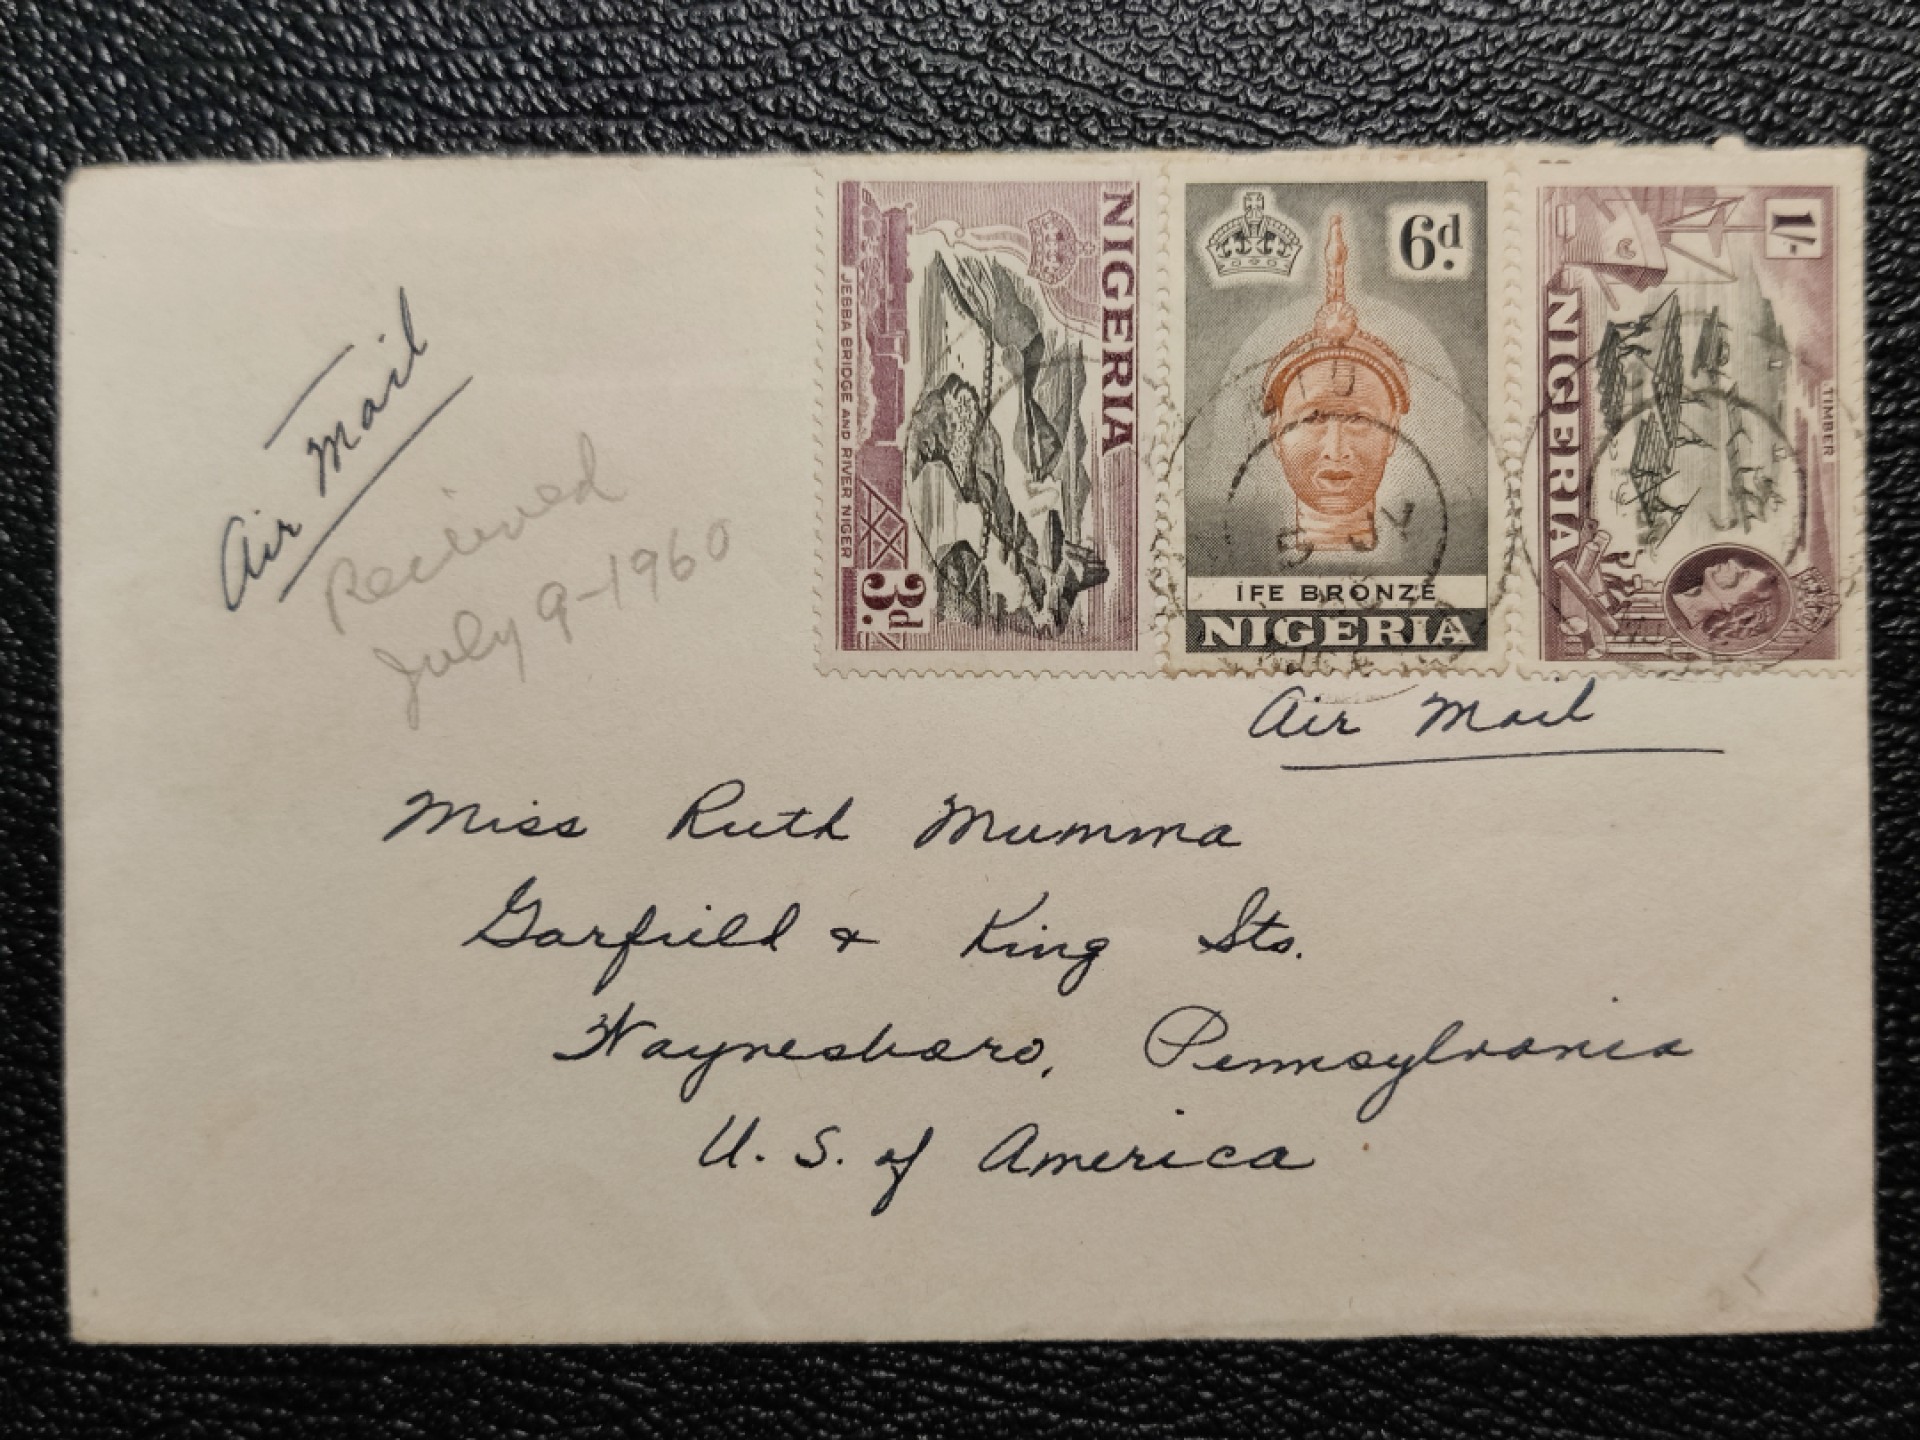 Air Mail
Recieved
July 9-1960
NIGERIA
JEBBA BRIDGE AND RIVER NIGER
3d.
6d.
IFE BRONZE
NIGERIA
1/-
TIMBER
NIGERIA
Air Mail
Miss Ruth Mumma
Garfield & King Sts.
Waynesboro, Pennsylvania
U. S. of America